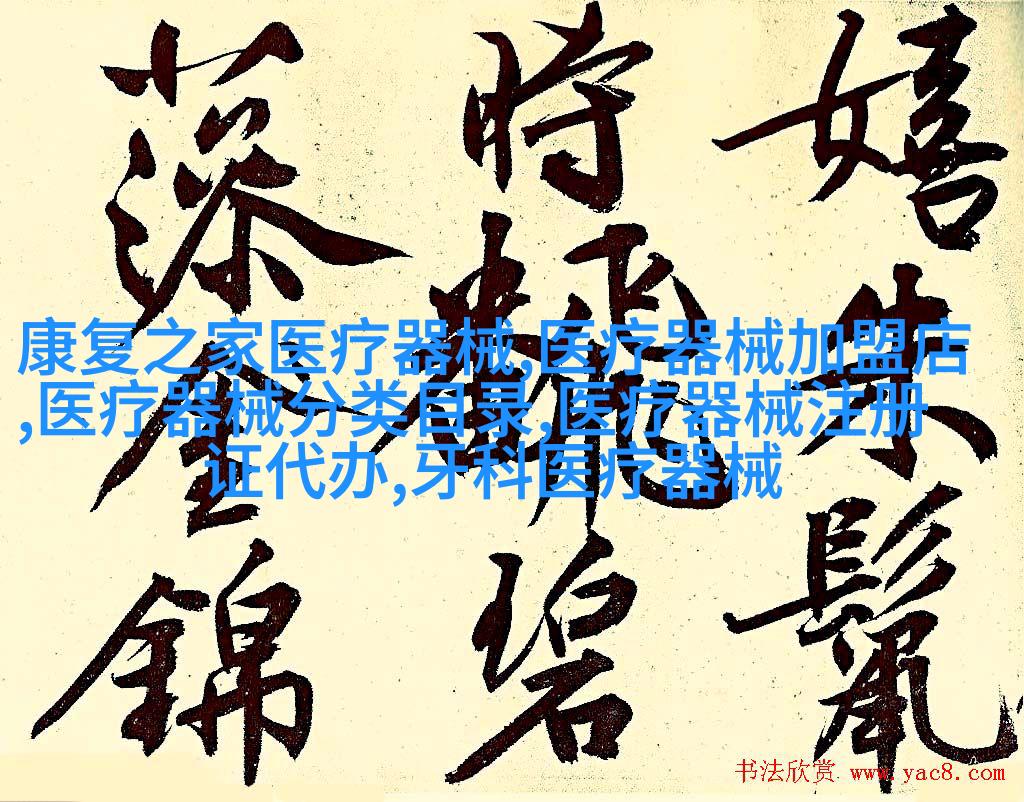 嬉朱鬣
時飜碧
錦
康复之家医疗器械,医疗器械加盟店
,医疗器械分类目录,医疗器械注册
证代办,牙科医疗器械
书法欣赏 www.yac8.com